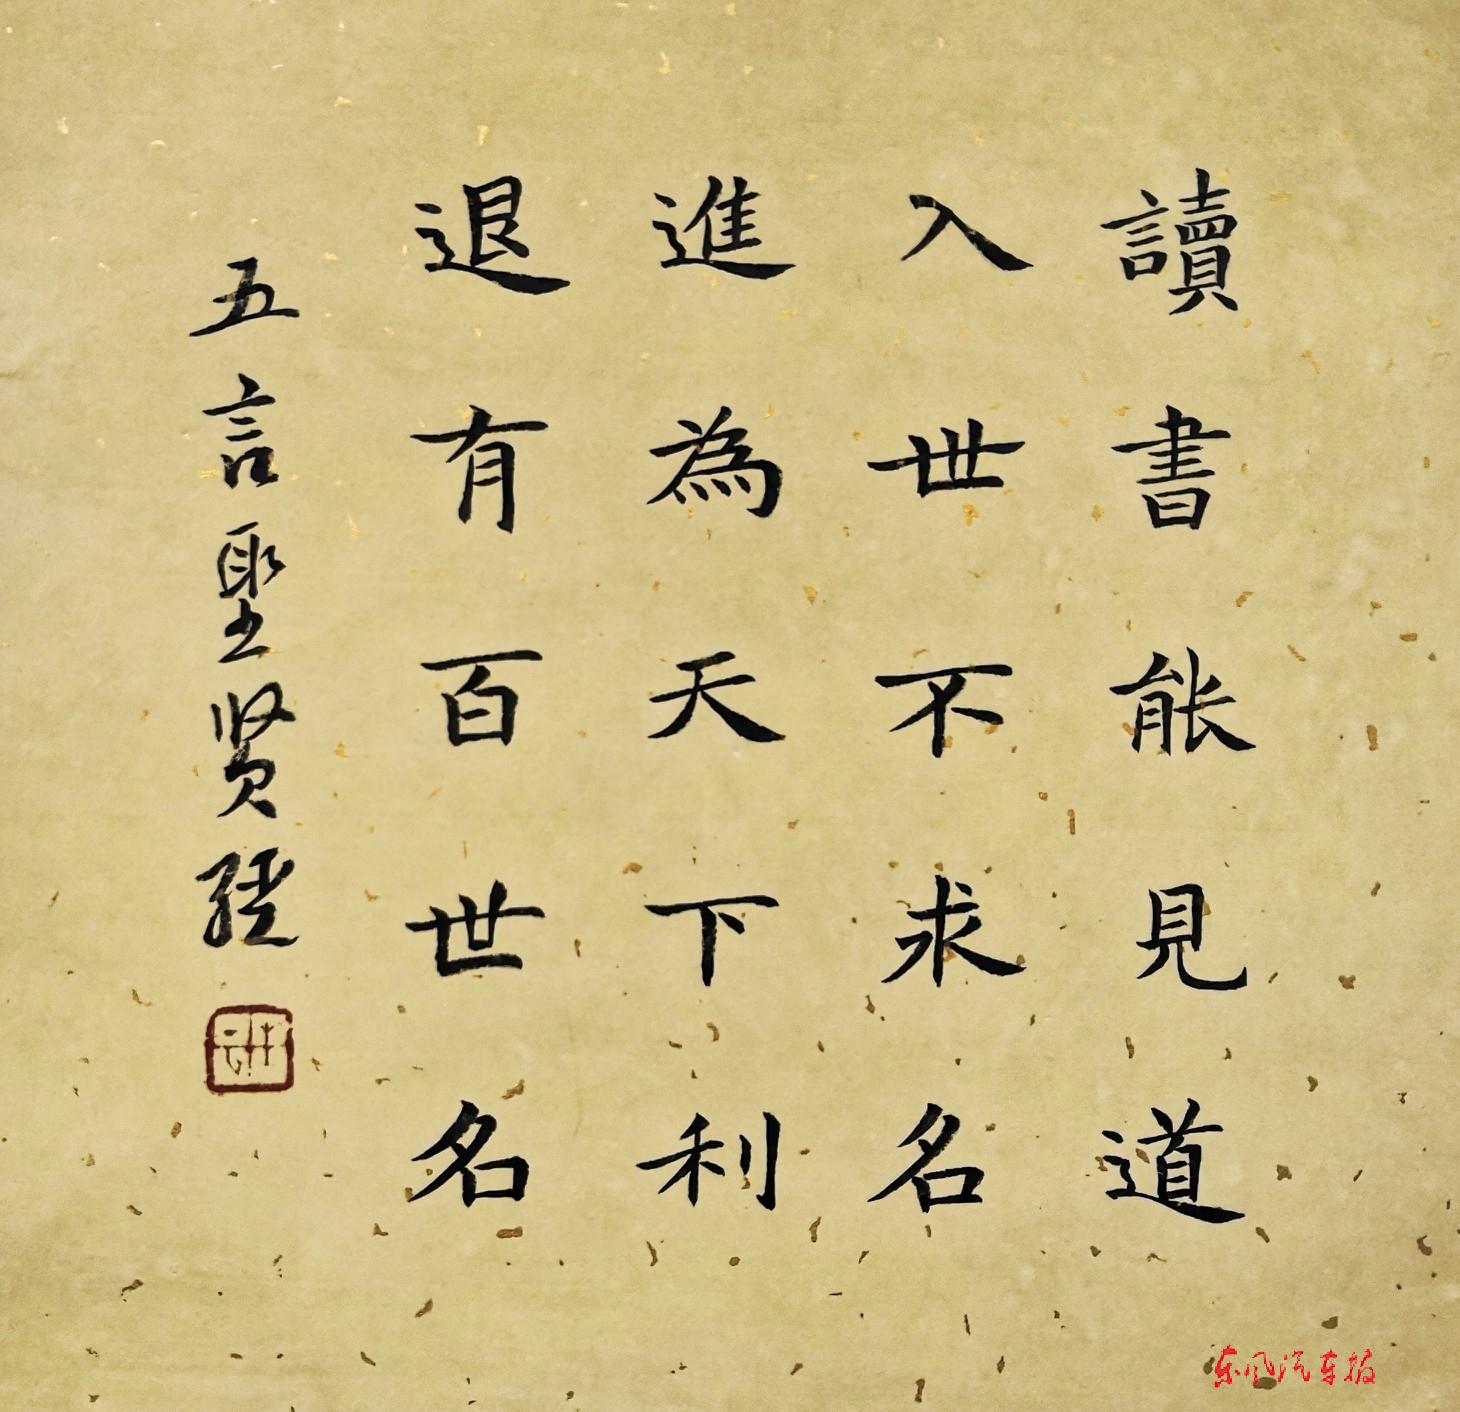 讀書能見道
入世不求名
進為天下利
退有百世名
五言聖贤經
东风汽车报